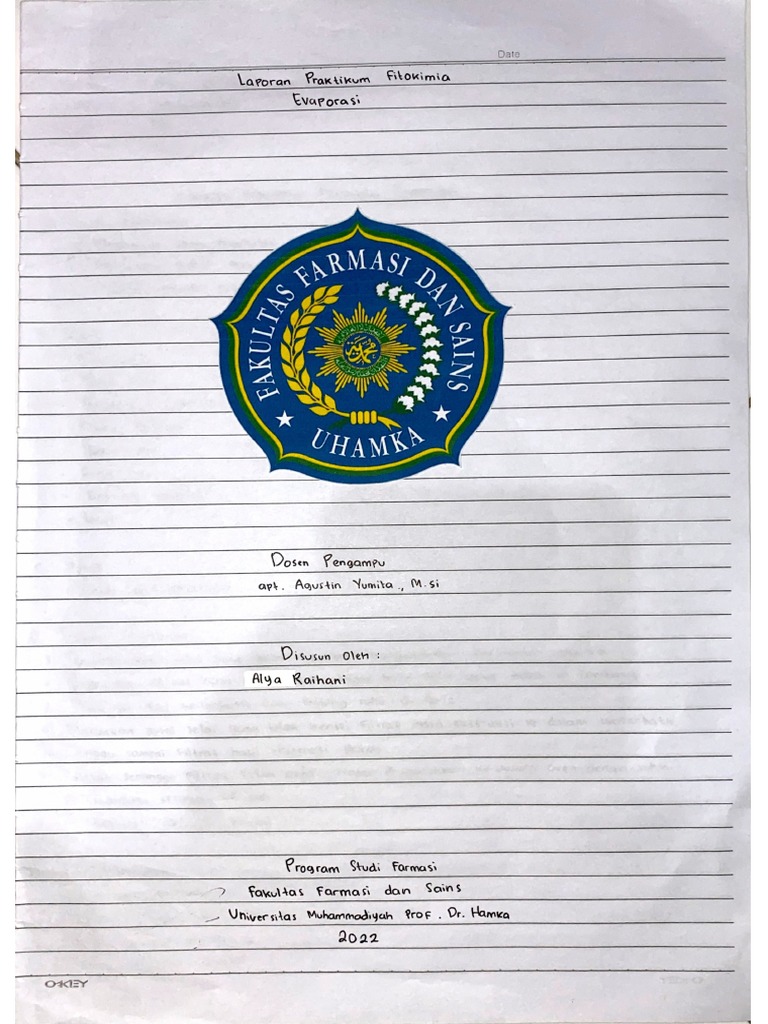 Date
Laporan Praktikum Fitokimia
Evaporasi
FAKULTAS FARMASI DAN SAINS
UHAMKA
Dosen Pengampu
apt. Agustin Yumita., M.si
Disusun Oleh :
Alya Raihani
Program Studi Farmasi
Fakultas Farmasi dan Sains
Universitas Muhammadiyah Prof. Dr. Hamka
2022
OKEY